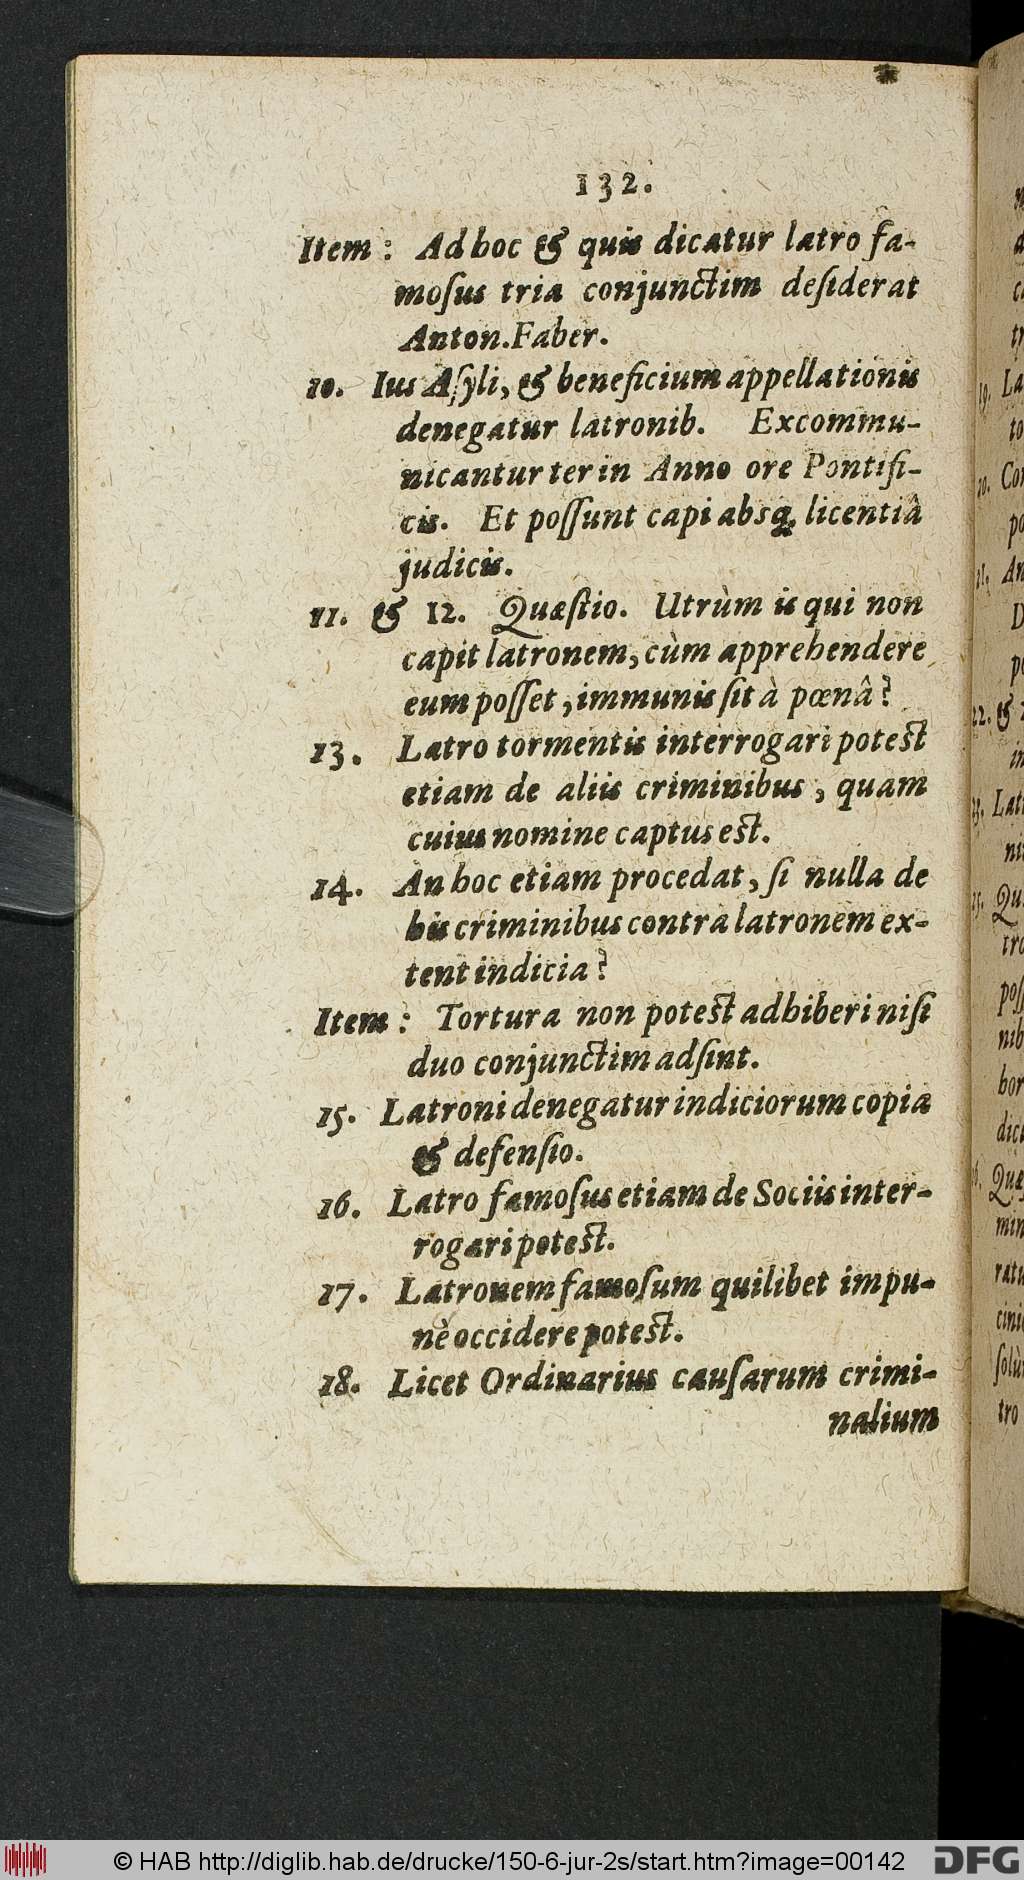 132.
Item : Ad hoc & quis dicatur latro fa-
moſus tria conjunctim deſiderat
Anton. Faber.
10. Ius Aſyli, & beneficium appellationis
denegatur latronib. Excommu-
nicantur ter in Anno ore Pontifi-
cis. Et poſſunt capi absq; licentiâ
judicis.
11. & 12. Quæſtio. Utrùm is qui non
capit latronem, cùm apprehendere
eum poſſet, immunis ſit à pœnâ?
13. Latro tormentis interrogari poteſt
etiam de aliis criminibus, quam
cuius nomine captus eſt.
14. An hoc etiam procedat, ſi nulla de
his criminibus contra latronem ex-
tent indicia?
Item : Tortura non poteſt adhiberi niſi
duo conjunctim adſint.
15. Latroni denegatur indiciorum copia
& defenſio.
16. Latro famoſus etiam de Sociis inter-
rogari poteſt.
17. Latronem famoſum quilibet impu-
nè occidere poteſt.
18. Licet Ordinarius cauſarum crimi-
nalium
19. La
to
20. Con
po
21. An
D
po
22. &
in
Lat
ni
Qu
tro
poſſ
nib
bor
dic
Quæ
min
ratu
cini
ſolù
tro
© HAB http://diglib.hab.de/drucke/150-6-jur-2s/start.htm?image=00142
DFG